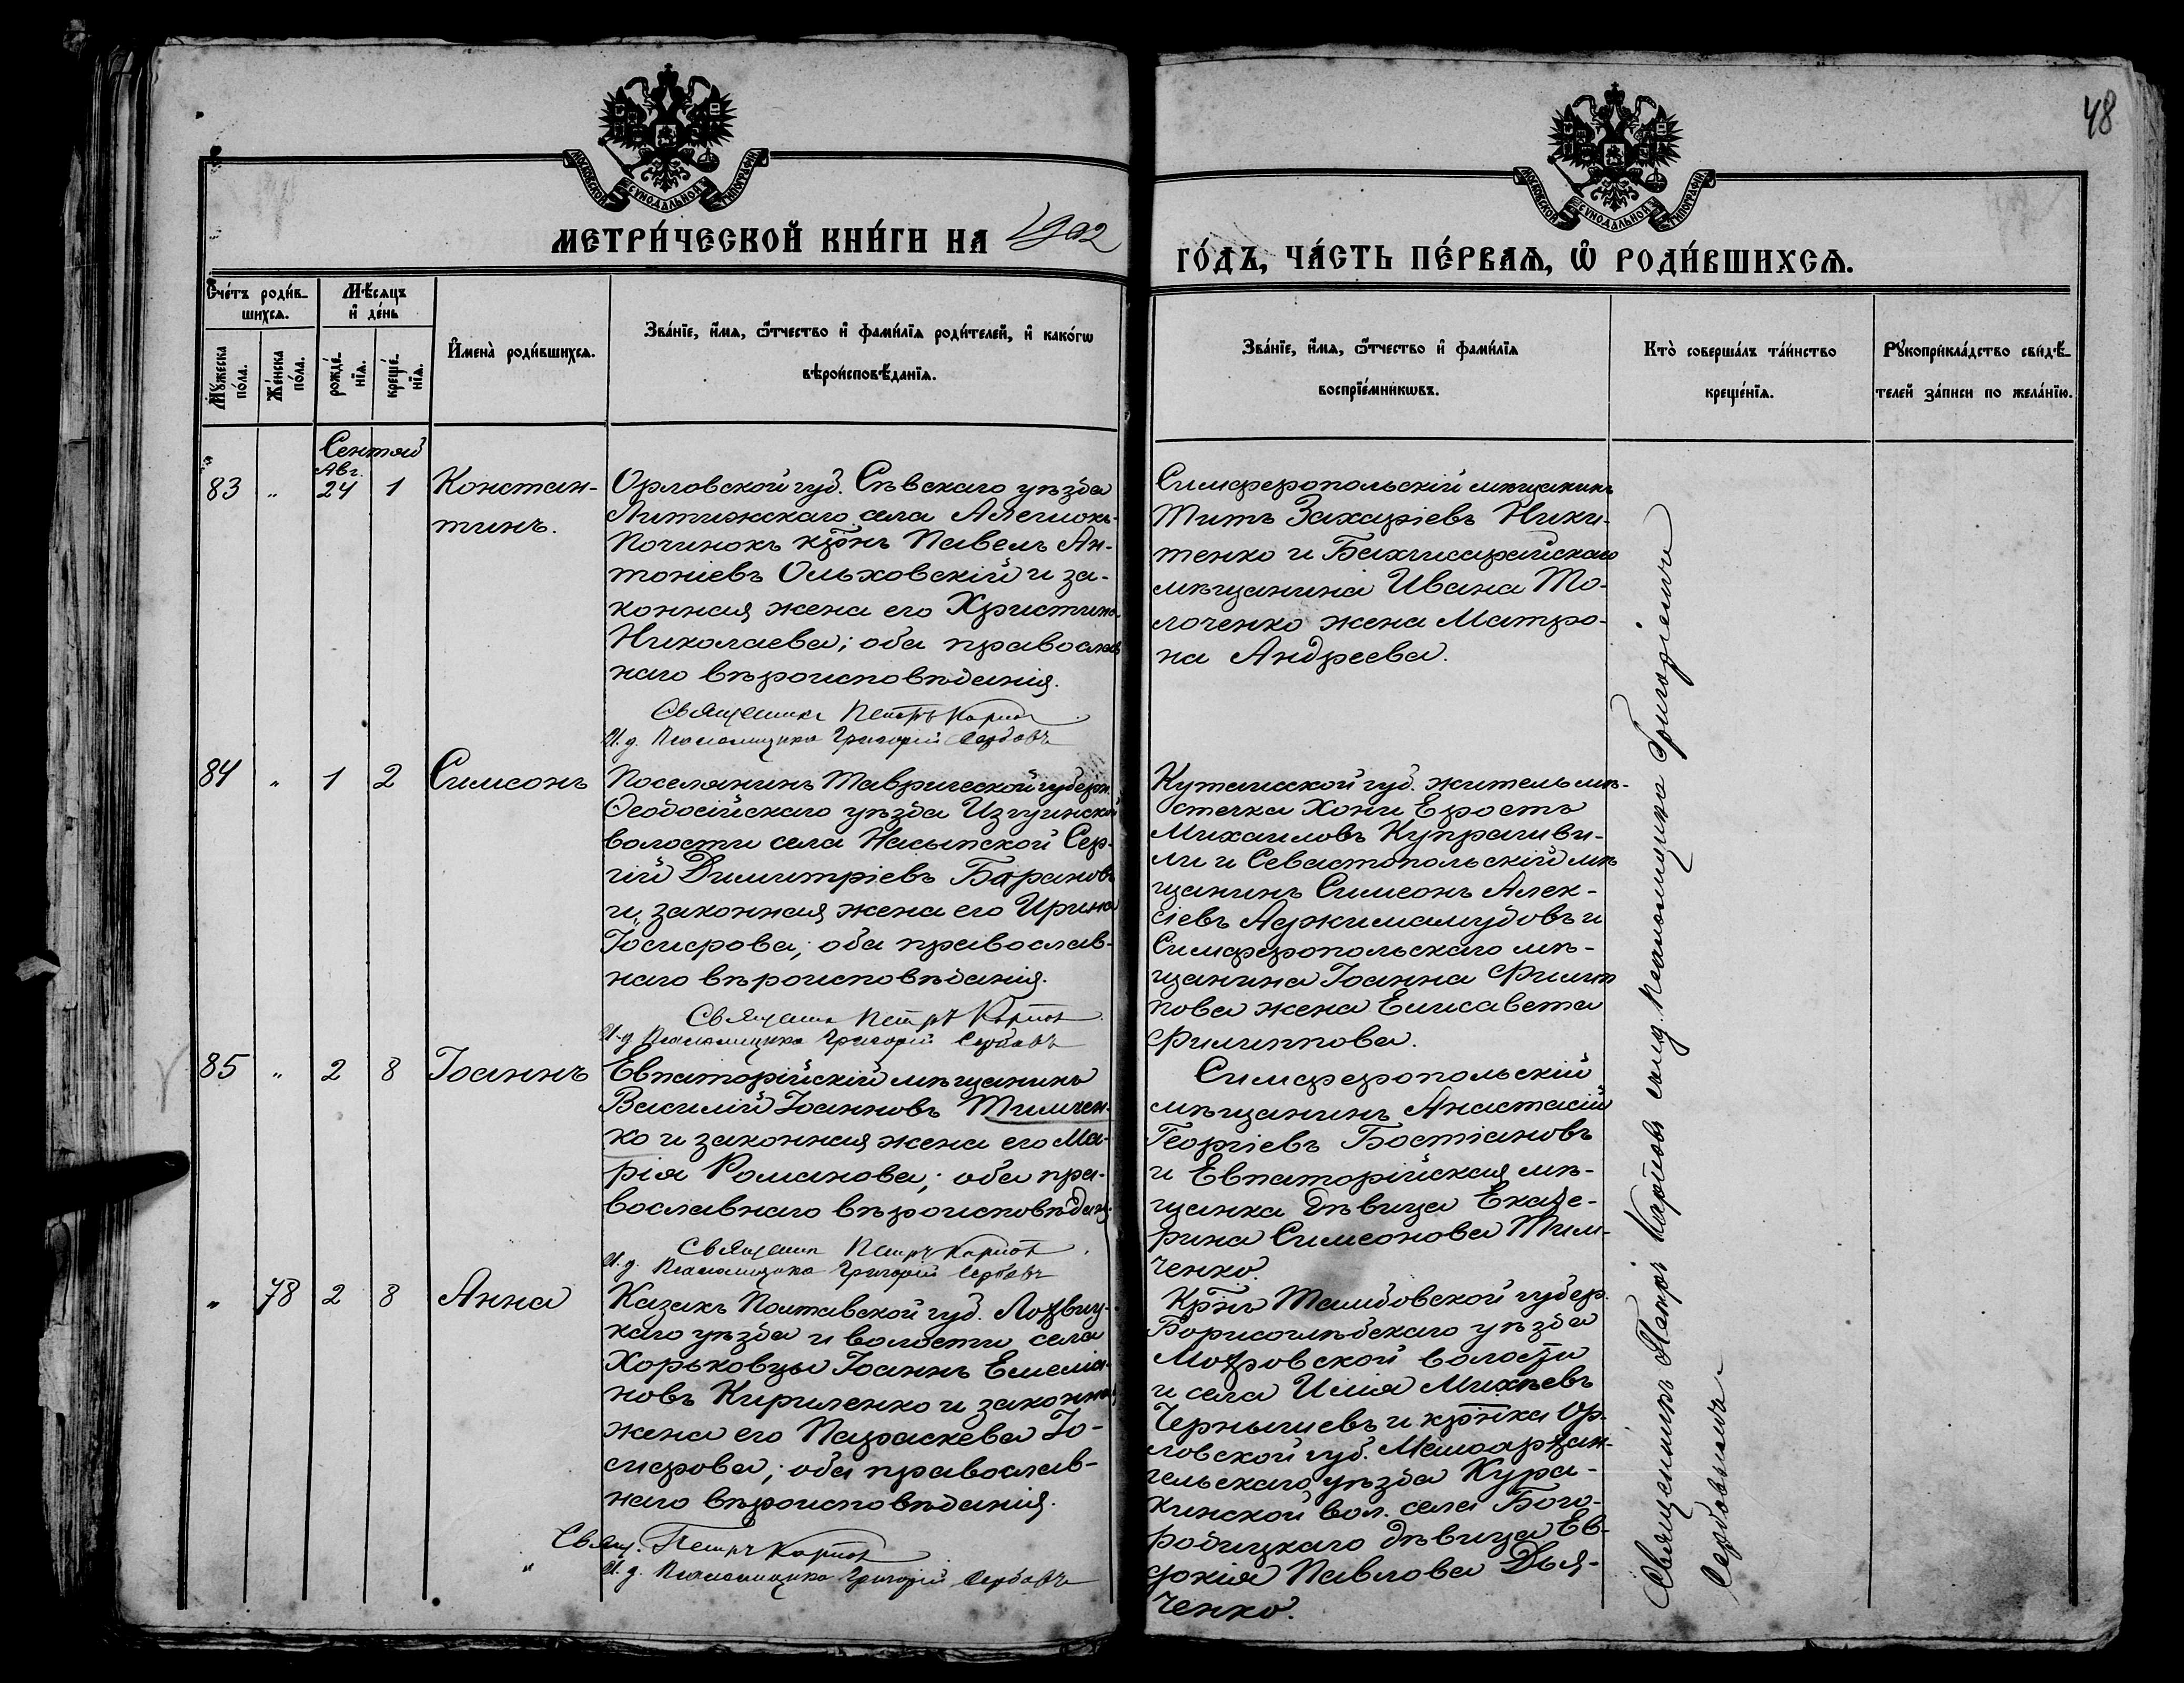 48
МОСКОВСКОЙ СѴНОДАЛЬНОЙ ТИПОГРАФІИ
МОСКОВСКОЙ СѴНОДАЛЬНОЙ ТИПОГРАФІИ
МЕТРИ́ЧЕСКОЙ КНИ́ГИ НА 1902
ГО́ДЪ, ЧА́СТЬ ПЕ́РВАѦ, Ѡ҆ РОДИ́ВШИХСѦ.
Счéтъ роди́в-
шихсѧ.
Мѣ́сѧцъ
и҆ де́нь
Мꙋ́жеска
по́ла.
Же́нска
по́ла.
рожде́-
нїѧ.
креще́-
нїѧ.
И҆мена̀ роди́вшихсѧ.
Зва́нїе, и҆́мѧ, ѻ҆́тчество и҆ фами́лїѧ роди́телей, и҆ како́гѡ
вѣроисповѣ́данїѧ.
Зва́нїе, и҆́мѧ, ѻ҆́тчество и҆ фами́лїѧ
воспрїе́мникѡвъ.
Кто̀ соверша́лъ та́инство
креще́нїѧ.
Рꙋкоприкла́дство свидѣ́-
телей за́писи по жела́нїю.
Сентяб
Авг.
83 " 24 1 Констан-
тинъ.
Орловской губ. Сѣвскаго уѣзда
Литижскаго села
Починокъ крнъ Павелъ Ан-
тоніевъ Ольховскій и за-
конная жена его Христина
Николаева; оба православ
наго вѣроисповѣданія.
Священникъ Петръ Карпов
И. д. Псаломщика Григорій Сербовъ
Симферопольскій мѣщанинъ
Титъ Захаріевъ Ники-
тенко и Бахчисарайскаго
мѣщанина Ивана То-
лоченко жена Матро-
на Андреева.
84 " 1 2 Симеонъ
Поселянинъ Таврической губерн.
Ѳеодосійскаго уѣзда
волости села Насыпкой Сер-
гій Димитріевъ Барановъ
и законная жена его Ирина
Іосифова; оба православ-
наго вѣроисповѣданія.
Священник Петръ Карпов
И. д. Псаломщика Григорій Сербовъ
Кутаисской губ. житель мѣ-
стечка Хони
Михаиловъ Купрашви-
ли и Севастопольскій мѣ
щанинъ Симеонъ Алек-
сіевъ Аджимамудовъ и
Симферопольскаго мѣ-
щанина Іоанна Филип
пова жена Елисавета
Филиппова.
85 " 2 8 Іоаннъ
Евпаторійскій мѣщанинъ
Василій Іоанновъ Тимчен-
ко и законная жена его Ма-
рія Романова; оба пра-
вославнаго вѣроисповѣдан.
Священник Петръ Карпов
И. д. Псаломщика Григорій Сербовъ
Симферопольскій
мѣщанинъ Анастасій
Георгіевъ Бостіановъ
и Евпаторійская мѣ-
щанка дѣвица Екате-
рина Симеонова Тим-
ченко.
" 78 2 8 Анна
Казакъ Полтавской губ. Лохвиц-
каго уѣзда и волости села
Хорьковцы Іоаннъ Емелія-
новъ Кириленко и законная
жена его Параскева Іо-
сифова; оба православ-
наго вѣроисповѣданія.
Свящ. Петръ Карпов
И. д. Псаломщика Григорій Сербовъ
Крнъ Тамбовской губер.
Борисоглѣбскаго уѣзда
Мохровской волости
и села Илія Михѣевъ
Чернышевъ и крнка Ор-
ловской губ. Малоархан-
гельскаго уѣзда Кура-
кинской вол. села Бого-
родицкаго дѣвица Ев-
докія Павлова Дья-
ченко.
Священникъ Петръ Карповъ съ и. д. псаломщика Григоріемъ
Сербовымъ